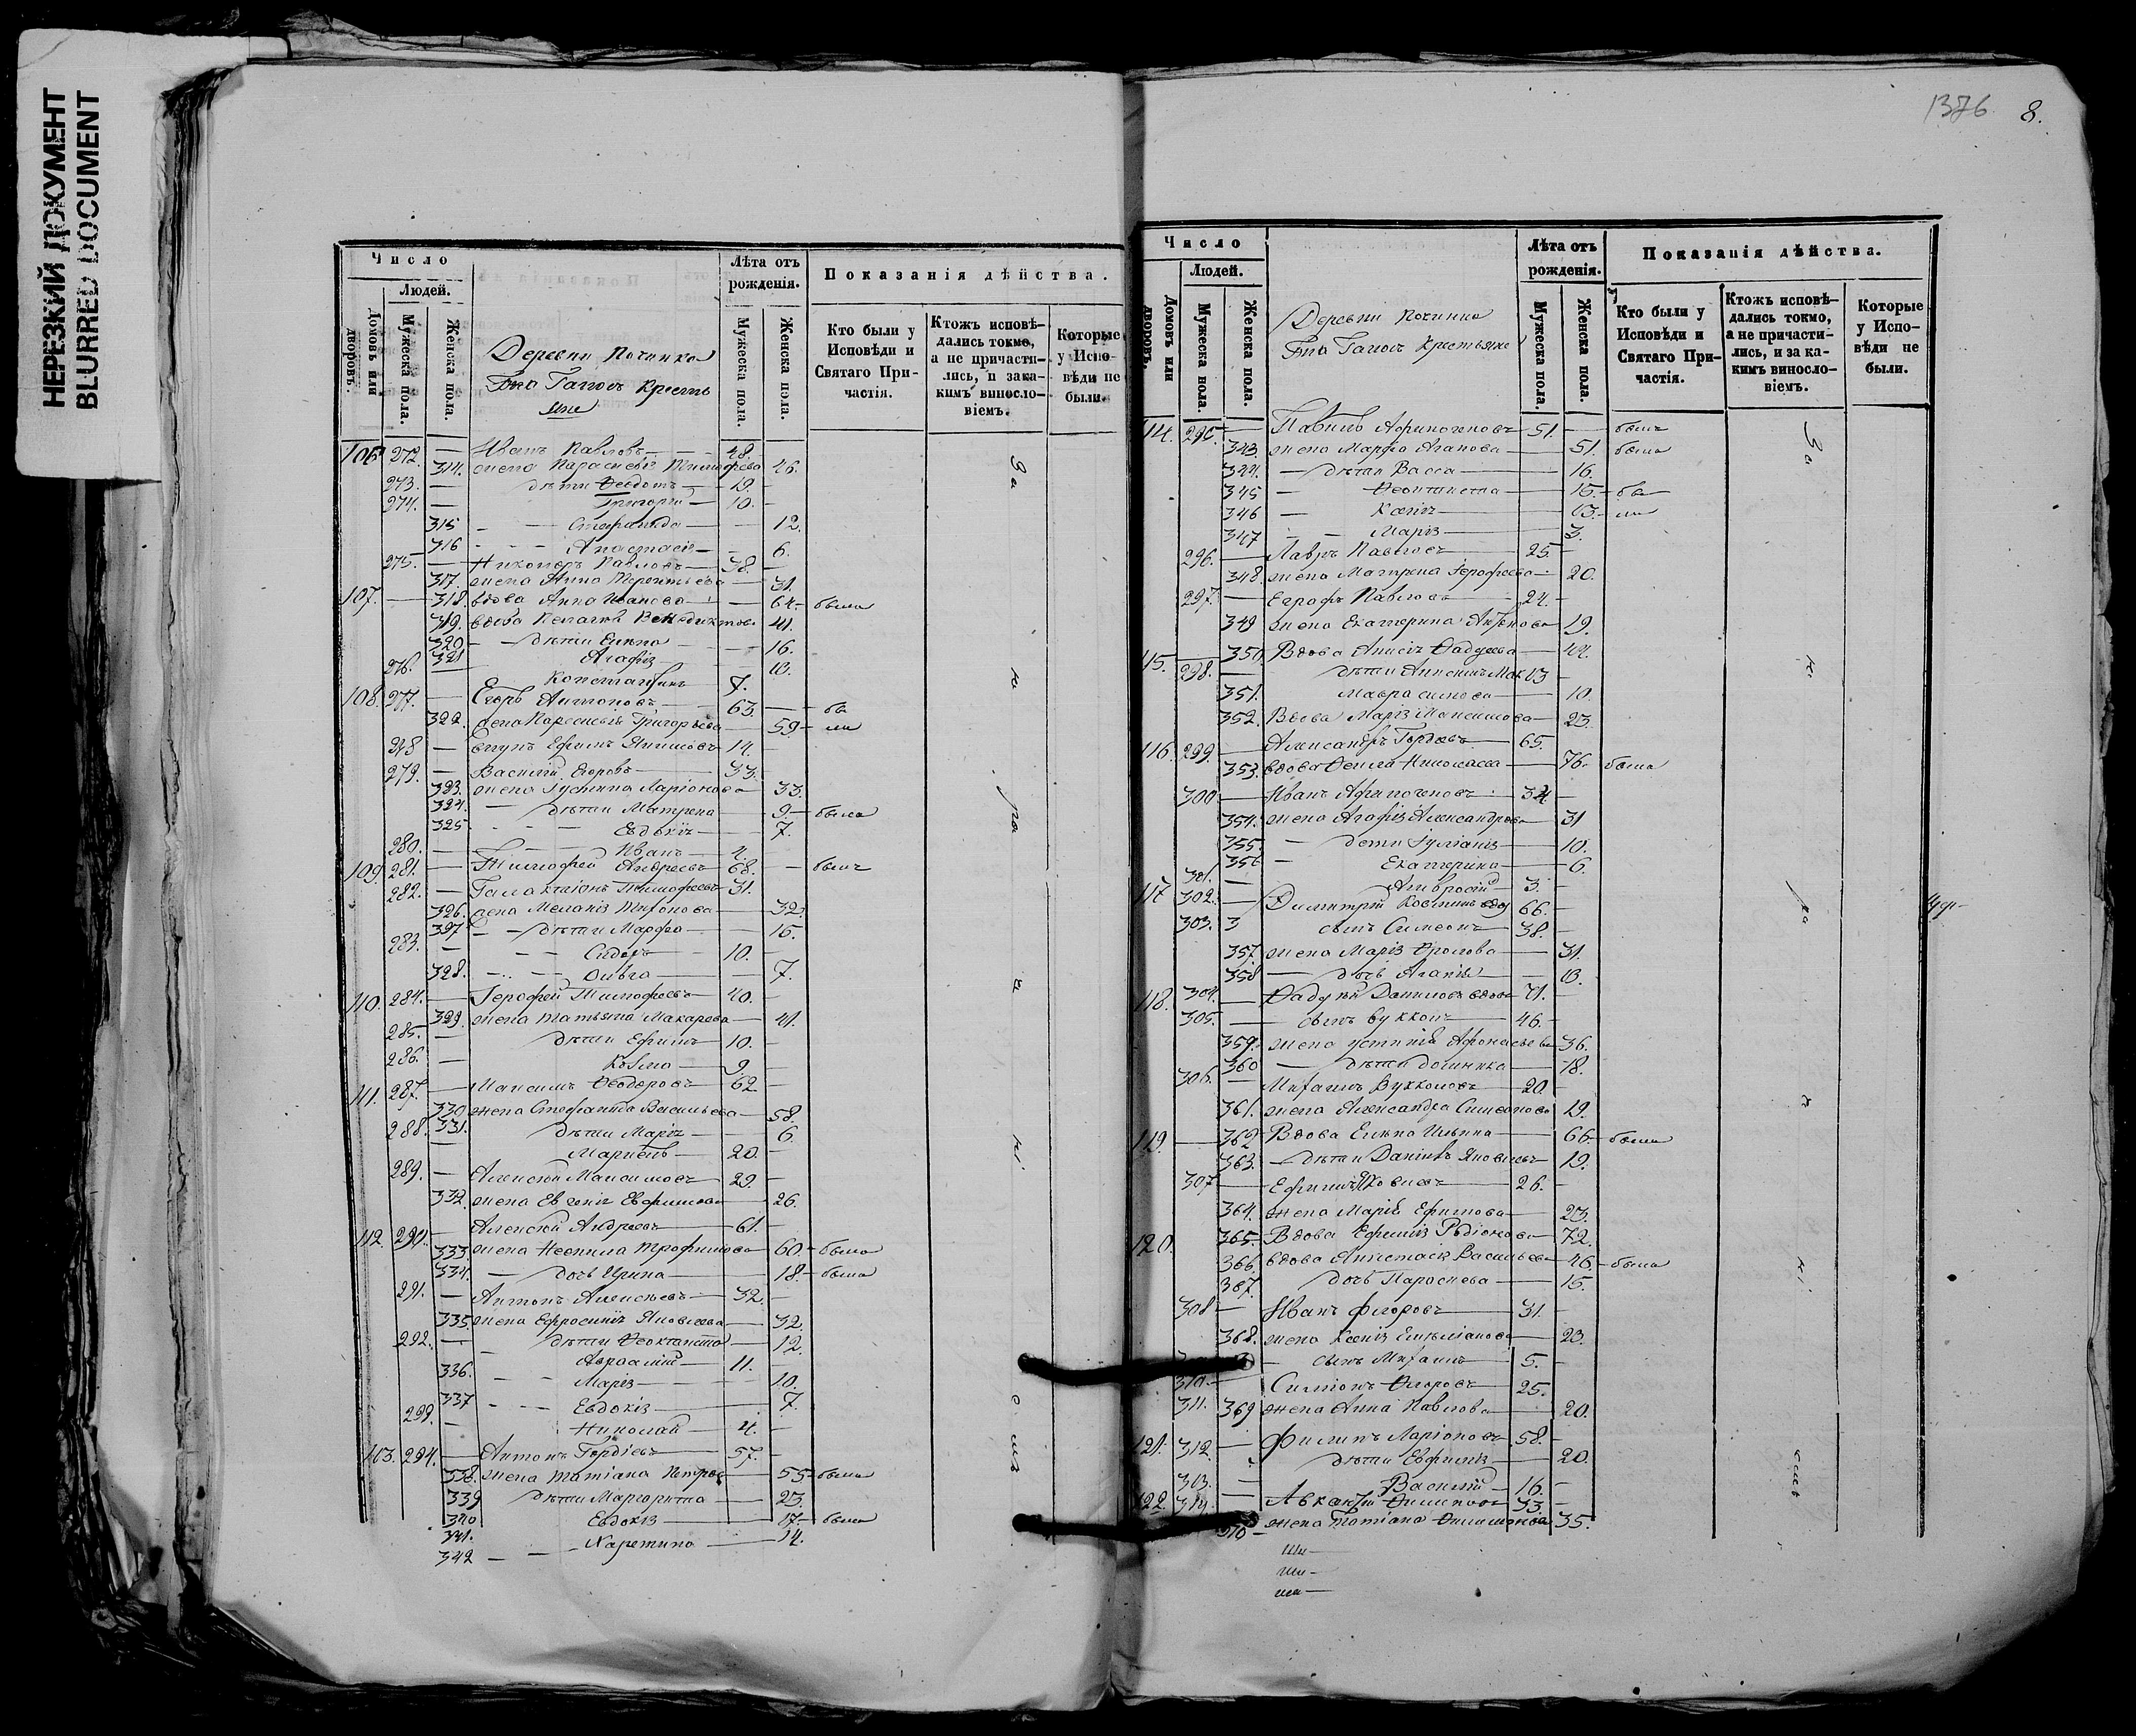 НЕРЕЗКИЙ ДОКУМЕНТ
BLURRED DOCUMENT
Число
Людей.
Домовъ или дворовъ.
Мужеска пола.
Женска пола.
Деревни Починка
Кресть
яне
Лѣта отъ рожденія.
Мужеска пола.
Женска пола.
Показанія дѣйства.
Кто были у Исповѣди и Святаго Причастія.
Ктожъ исповѣдались токмо, а не причастились, и за какимъ винословіемъ.
Которые у Исповѣди не были.
106 272. — Иванъ Павловъ 48. —
314. жена Параскевія Тимофеева 46.
273. — дѣти Ѳедотъ 19. —
274. — Григорій 10. —
315 — Стефанида — 12.
316 — Анастасія — 6.
275. — Никифоръ Павловъ 38. —
317. жена Анна Терентьева — 31.
107. — 318. вдова Анна Иванова — 64 — была
319. вдова Пелагія Венедиктова 41.
320 — дѣти Елена — 16.
321 Агафія — 10.
276. — Константинъ 7.
108. 277. — Егоръ Антоновъ 63. — бы
322. жена Параскевья Григорьева 59 — ли
278 — Ефимъ 14. —
279. — Василій Егоровъ 33.
323. жена Іустина Ларіонова 33.
324. — дѣти Матрена 9 — была
325 — Евдокія 7.
280. — Иванъ 4.
109. 281. — Тимофей Андреевъ 68. — былъ
282. — Галактіонъ Тимофеевъ 31.
326. жена Меланія Тихонова 32.
327 — дѣти Марфа 15.
283. — Сидоръ 10. —
328. — Ольга — 7.
110. 284. — Іерофей Тимофеевъ 40. —
329. жена Татьяна Макарова 41.
285. — дѣти Ефимъ 10. —
286. — Козма 9
111. 287. — Максимъ Ѳеодоровъ 62 —
330 жена Стефанида Васильева 58.
331. дѣти Марія 6.
288. — 20. —
289. — Алексѣй Максимовъ 29. —
332. жена Евгенія Евфимова 26.
112. 290. — Алексѣй Андреевъ 61. —
333 жена Неонила Трофимова 60. — была
334. — дочь Ирина 18. — была
291. — Антонъ Алексѣевъ 32. —
335. жена Ефросинія Яковлева 32.
292. — дѣти Ѳеоктиста 12.
11. —
336. — Марія 10.
337 — Евдокія 7.
293. — Николай 4. —
113. 294. — Антонъ Гордіевъ 57. —
338. жена Татіана Петрова 55 — была
339 дѣти Маргарита 23.
340 Евдокія 17 — была
341. Харитина 14.
342 —
За
не
ра
ні
1376 8.
Число
Людей.
Домовъ или дворовъ.
Мужеска пола.
Женска пола.
Деревни Починка
Крестьяне
Лѣта отъ рожденія.
Мужеска пола.
Женска пола.
Показанія дѣйства.
Кто были у Исповѣди и Святаго Причастія.
Ктожъ исповѣдались токмо, а не причастились, и за какимъ винословіемъ.
Которые у Исповѣди не были.
114. 295. — Павелъ Афиногеновъ 51. — былъ
343. жена Марфа Агапова 51. была
344. — дѣти Васса 16.
345 — Ѳеоктиста 15. — бы
346 — Ксенія 13. — ли
347 — Марія 3.
296. — Лавръ Павловъ 25. —
348. жена Матрена Іерофеева 20.
297. — Евграфъ Павловъ 24. —
349 жена Екатерина 19.
115. 350. Вдова Анисія Ѳадеева 44.
298. — дѣти 13 —
351. Мавра 10.
352. Вдова Марія Максимова 23.
116. 299. — Александръ Гордѣевъ 65. —
353. вдова Николаева 76. была
300. — Иванъ Афиногеновъ 34 —
354. жена Агафія Александрова 31
355. — дети Іуліанія 10.
356 — Екатерина 6.
301. — Амвросій 3. —
117 302. — Димитрій 66. —
303. 3 сынъ Симеонъ 38. —
357. жена Марія Фролова 31.
358 — дочь Агапія 13.
118. 304. — Ѳадѣй Даниловъ вдовъ 71. —
305. — сынъ Вукколъ 46. —
359. жена Устинія Афонасьева 36.
360 — дѣти Домника 18.
306. — Михаилъ Вукколовъ 20. —
361. жена Александра Симеонова 19.
119. — 362 Вдова Елена Ильина 66. — была
363. — дѣти 19.
307 — Ефимъ Яковлевъ 26. —
364. жена Марія Ефимова 23.
120. 365. Вдова Ефимія Родіонова 72.
366. вдова Анастасія Васильева 46. — была
367. дочь Параскева 15.
308 — Иванъ Федоровъ 31. —
368. жена Ксенія Емельянова 23.
сынъ Михаилъ 5. —
310. — Симіонъ Ѳедоровъ 25. —
311. 369 жена Анна Павлова 20.
121. 312. — Филипъ Ларіоновъ 58. —
дѣти Евфимія 20.
313. — Василій 16. —
122. 314. — Филиповъ 33. —
370 — жена Татіана 35.
За
не
ра